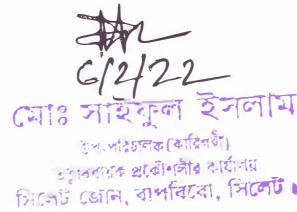 6/2/22
মোঃ সাইফুল ইসলাম
উপ-পরিচালক (কারিগরী)
তত্ত্বাবধায়ক প্রকৌশলীর কার্যালয়
সিলেট জোন, বাপবিবো, সিলেট।